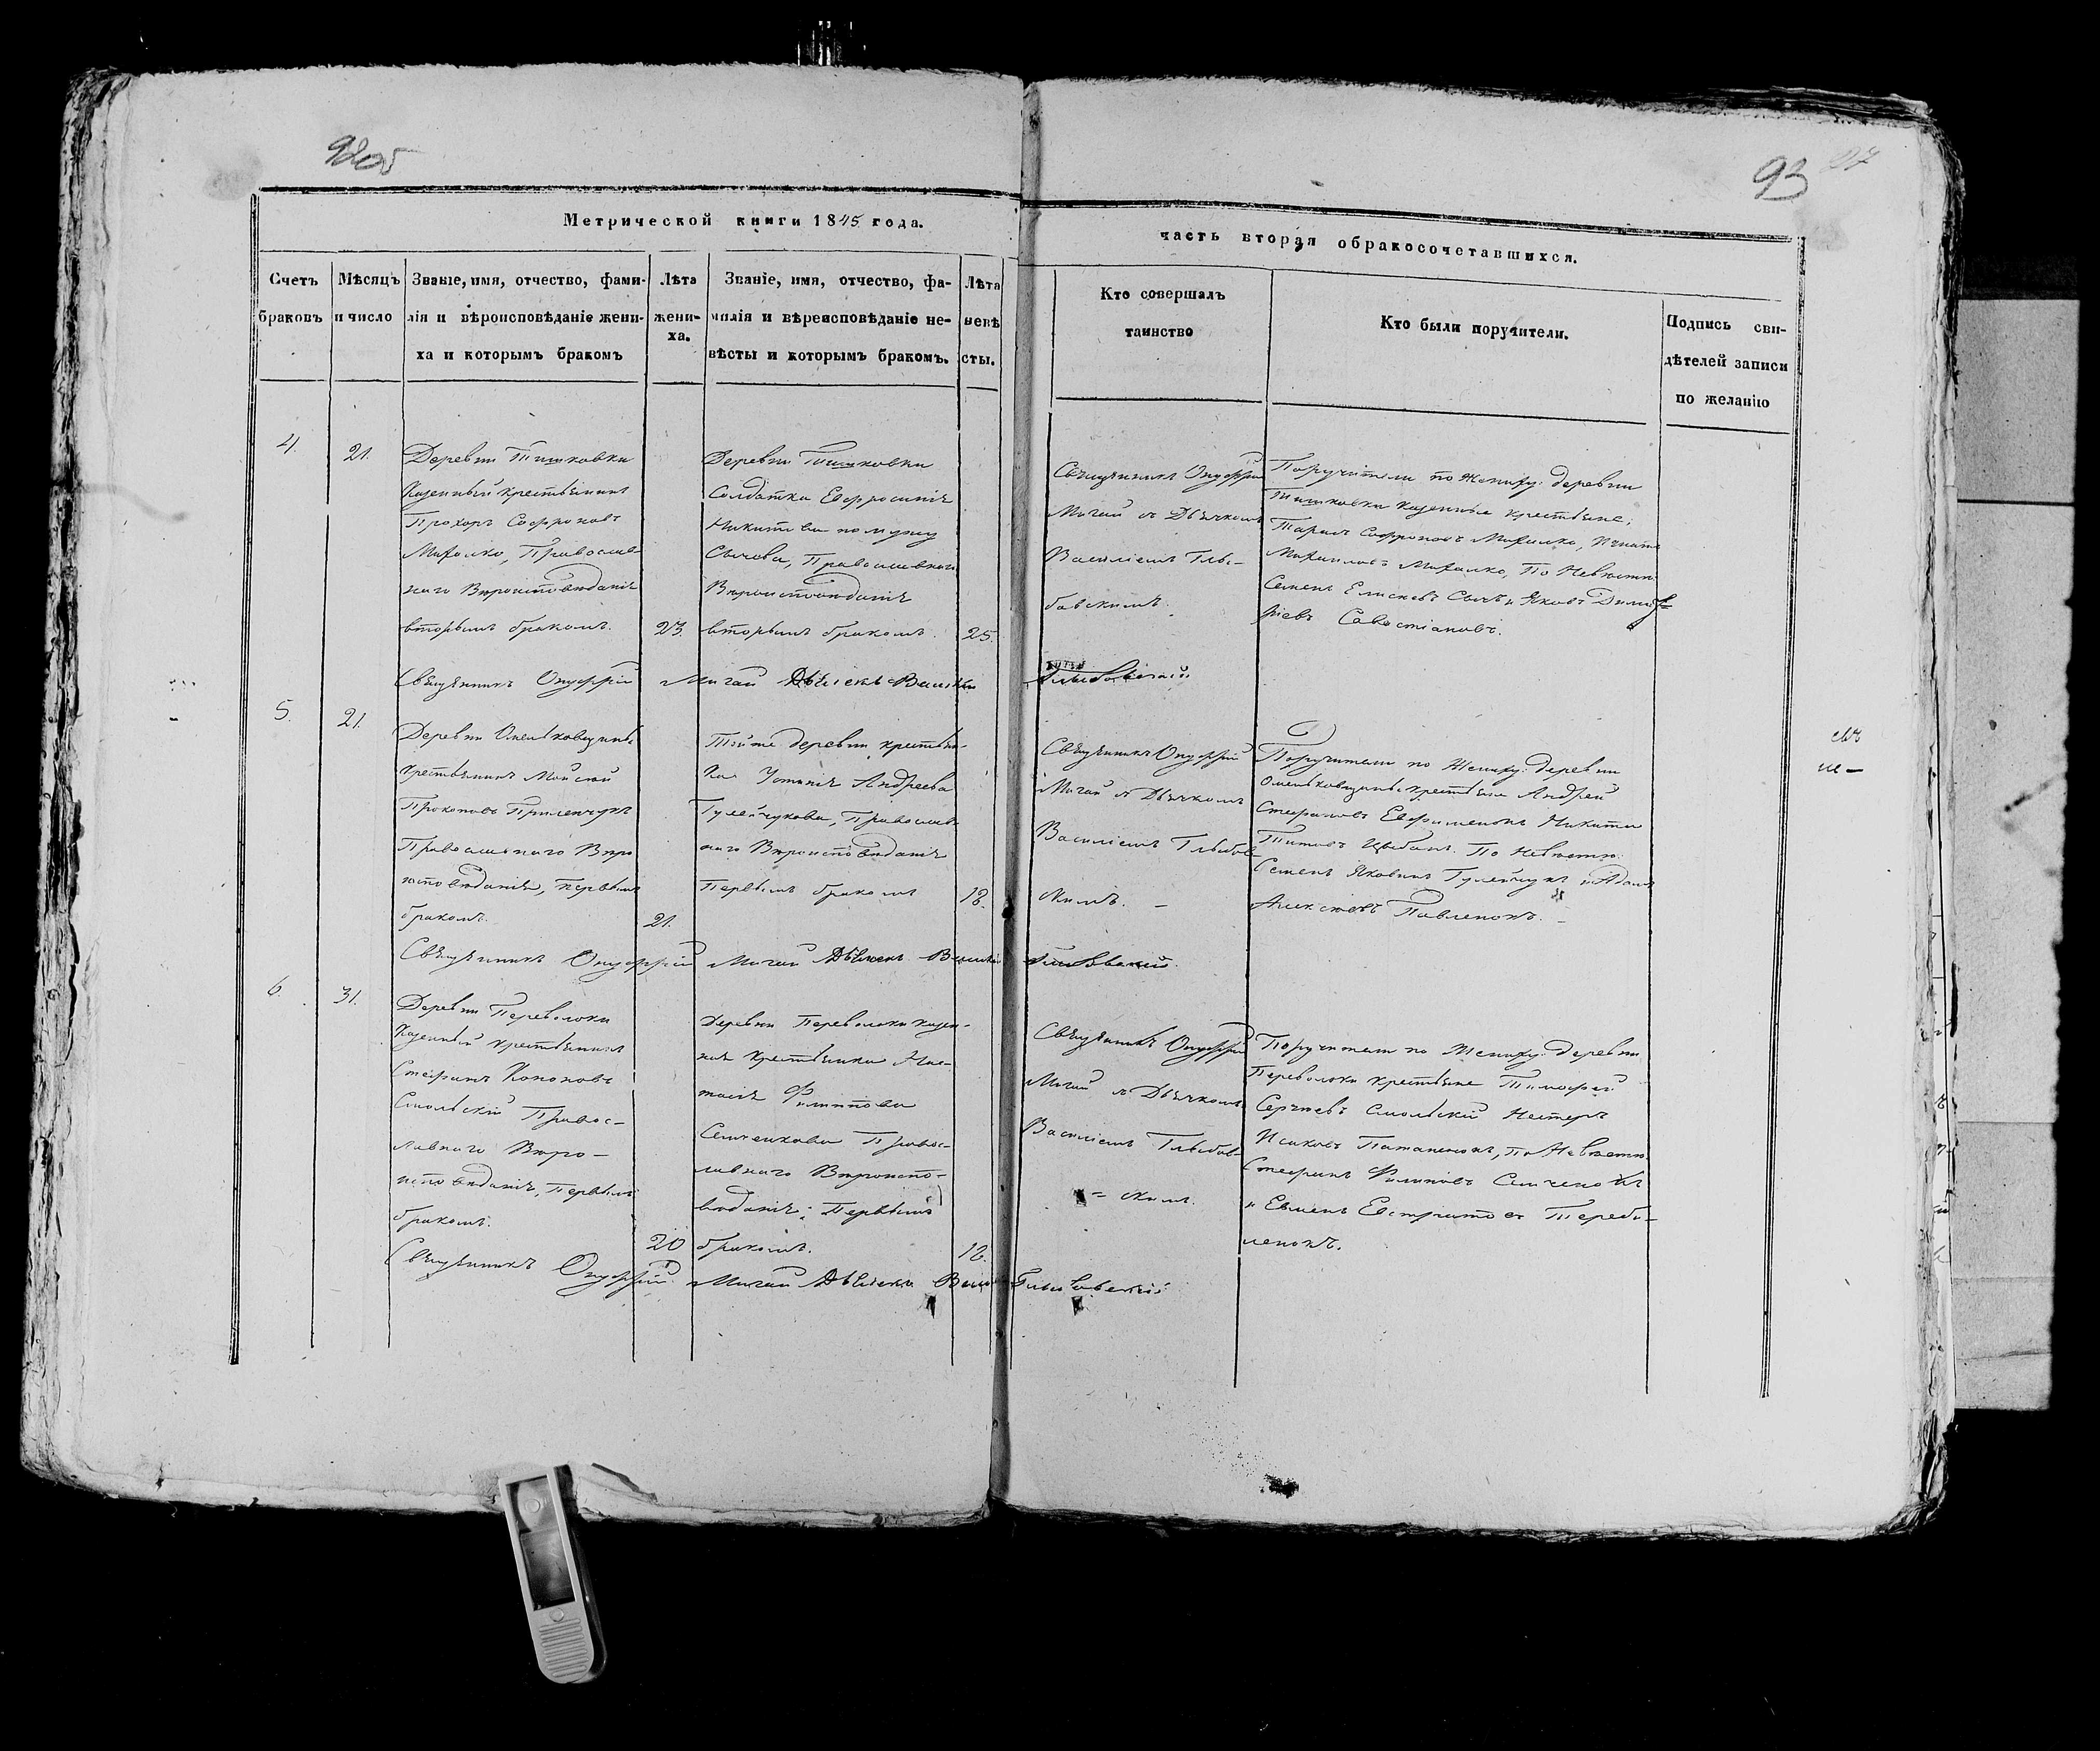 92об
93
Метрической книги 1845 года.
часть вторая обракосочетавшихся.
Счетъ браковъ
Мѣсяцъ и число
Званіе, имя, отчество, фами-
лія и вѣроисповѣданіе жени-
ха и которымъ бракомъ
Лѣта
жени-
ха.
Званіе, имя, отчество, фа-
милія и вѣроисповѣданіе не-
вѣсты и которымъ бракомъ.
Лѣта
невѣ
сты.
Кто совершалъ
таинство
Кто были поручители.
Подпись сви-
дѣтелей записи
по желанію
4.
21.
Деревни Тишковки
Казенный крестьянинъ
Прохоръ Софроновъ
Михалко, Православ-
наго Вѣроисповѣданія
вторымъ бракомъ.
23.
Деревни Тишковки
Солдатка Евфросинія
Никитина по мужу
Сычова, Православнаго
Вѣроисповѣданія
вторымъ бракомъ.
25.
Священникъ Онуфрій
Мигай съ Дьячкомъ
Василіемъ Глы-
бовскимъ.
Поручители по Жениху: деревни
Тишковки казенные крестьяне;
Тарасъ Софроновъ Михалко, Игнатъ
Михайловъ Михалко, По Невѣстѣ
Семенъ Елисеевъ Сычъ и Яковъ Дими-
ріевъ Савостіановъ.
Священникъ Онуфрій Мигай Дьячекъ Василій
5.
21.
Деревни Омельковщины
Крестьянинъ Мойсей
Прокоповъ
Православнаго Вѣро
исповѣданія, первымъ
бракомъ.
21.
Тойже деревни крестьян-
ка Устинія Андреева
Гулейчукова, Православ-
наго Вѣроисповѣданія
Первымъ бракомъ
18.
Священникъ Онуфрій
Мигай съ Дьячкомъ
Василіемъ Глыбов
скимъ. –
Поручители по Жениху: деревни
Омельковщины крестьяне Андрей
Стефановъ Ефименокъ Никита
Титовъ Цыбань. По Невѣстѣ:
Семенъ Яковинъ Гулейчукъ и Адамъ
Алексѣевъ Павленокъ. –
Священникъ Онуфрій Мигай Дьячекъ Василій
6.
31.
Деревни Переволоки
Казенный крестьянинъ
Стефанъ Кононовъ
Смольскій Правос-
лавнаго Вѣро-
исповѣданія, Первымъ
бракомъ.
20
Деревни Переволоки казен-
ная крестьянка Нас-
тасія Филиппова
Семченкова Правос-
лавнаго Вѣроиспо-
вѣданія; Первымъ
бракомъ.
18.
Священникъ Онуфрій
Мигай съ Дьячкомъ
Василіемъ Глыбов
= скимъ.
Поручители по Жениху: деревни
Переволоки крестьяне Тимофей
Сергѣевъ Смольскій Нестеръ
Исаковъ Потапенокъ, по Невѣстѣ
Стефанъ Филиповъ Семченокъ
и Евменъ Евстратовъ Тереб-
ленокъ.
Священникъ Онуфрій Мигай Дьячекъ Василій Глыбовскій